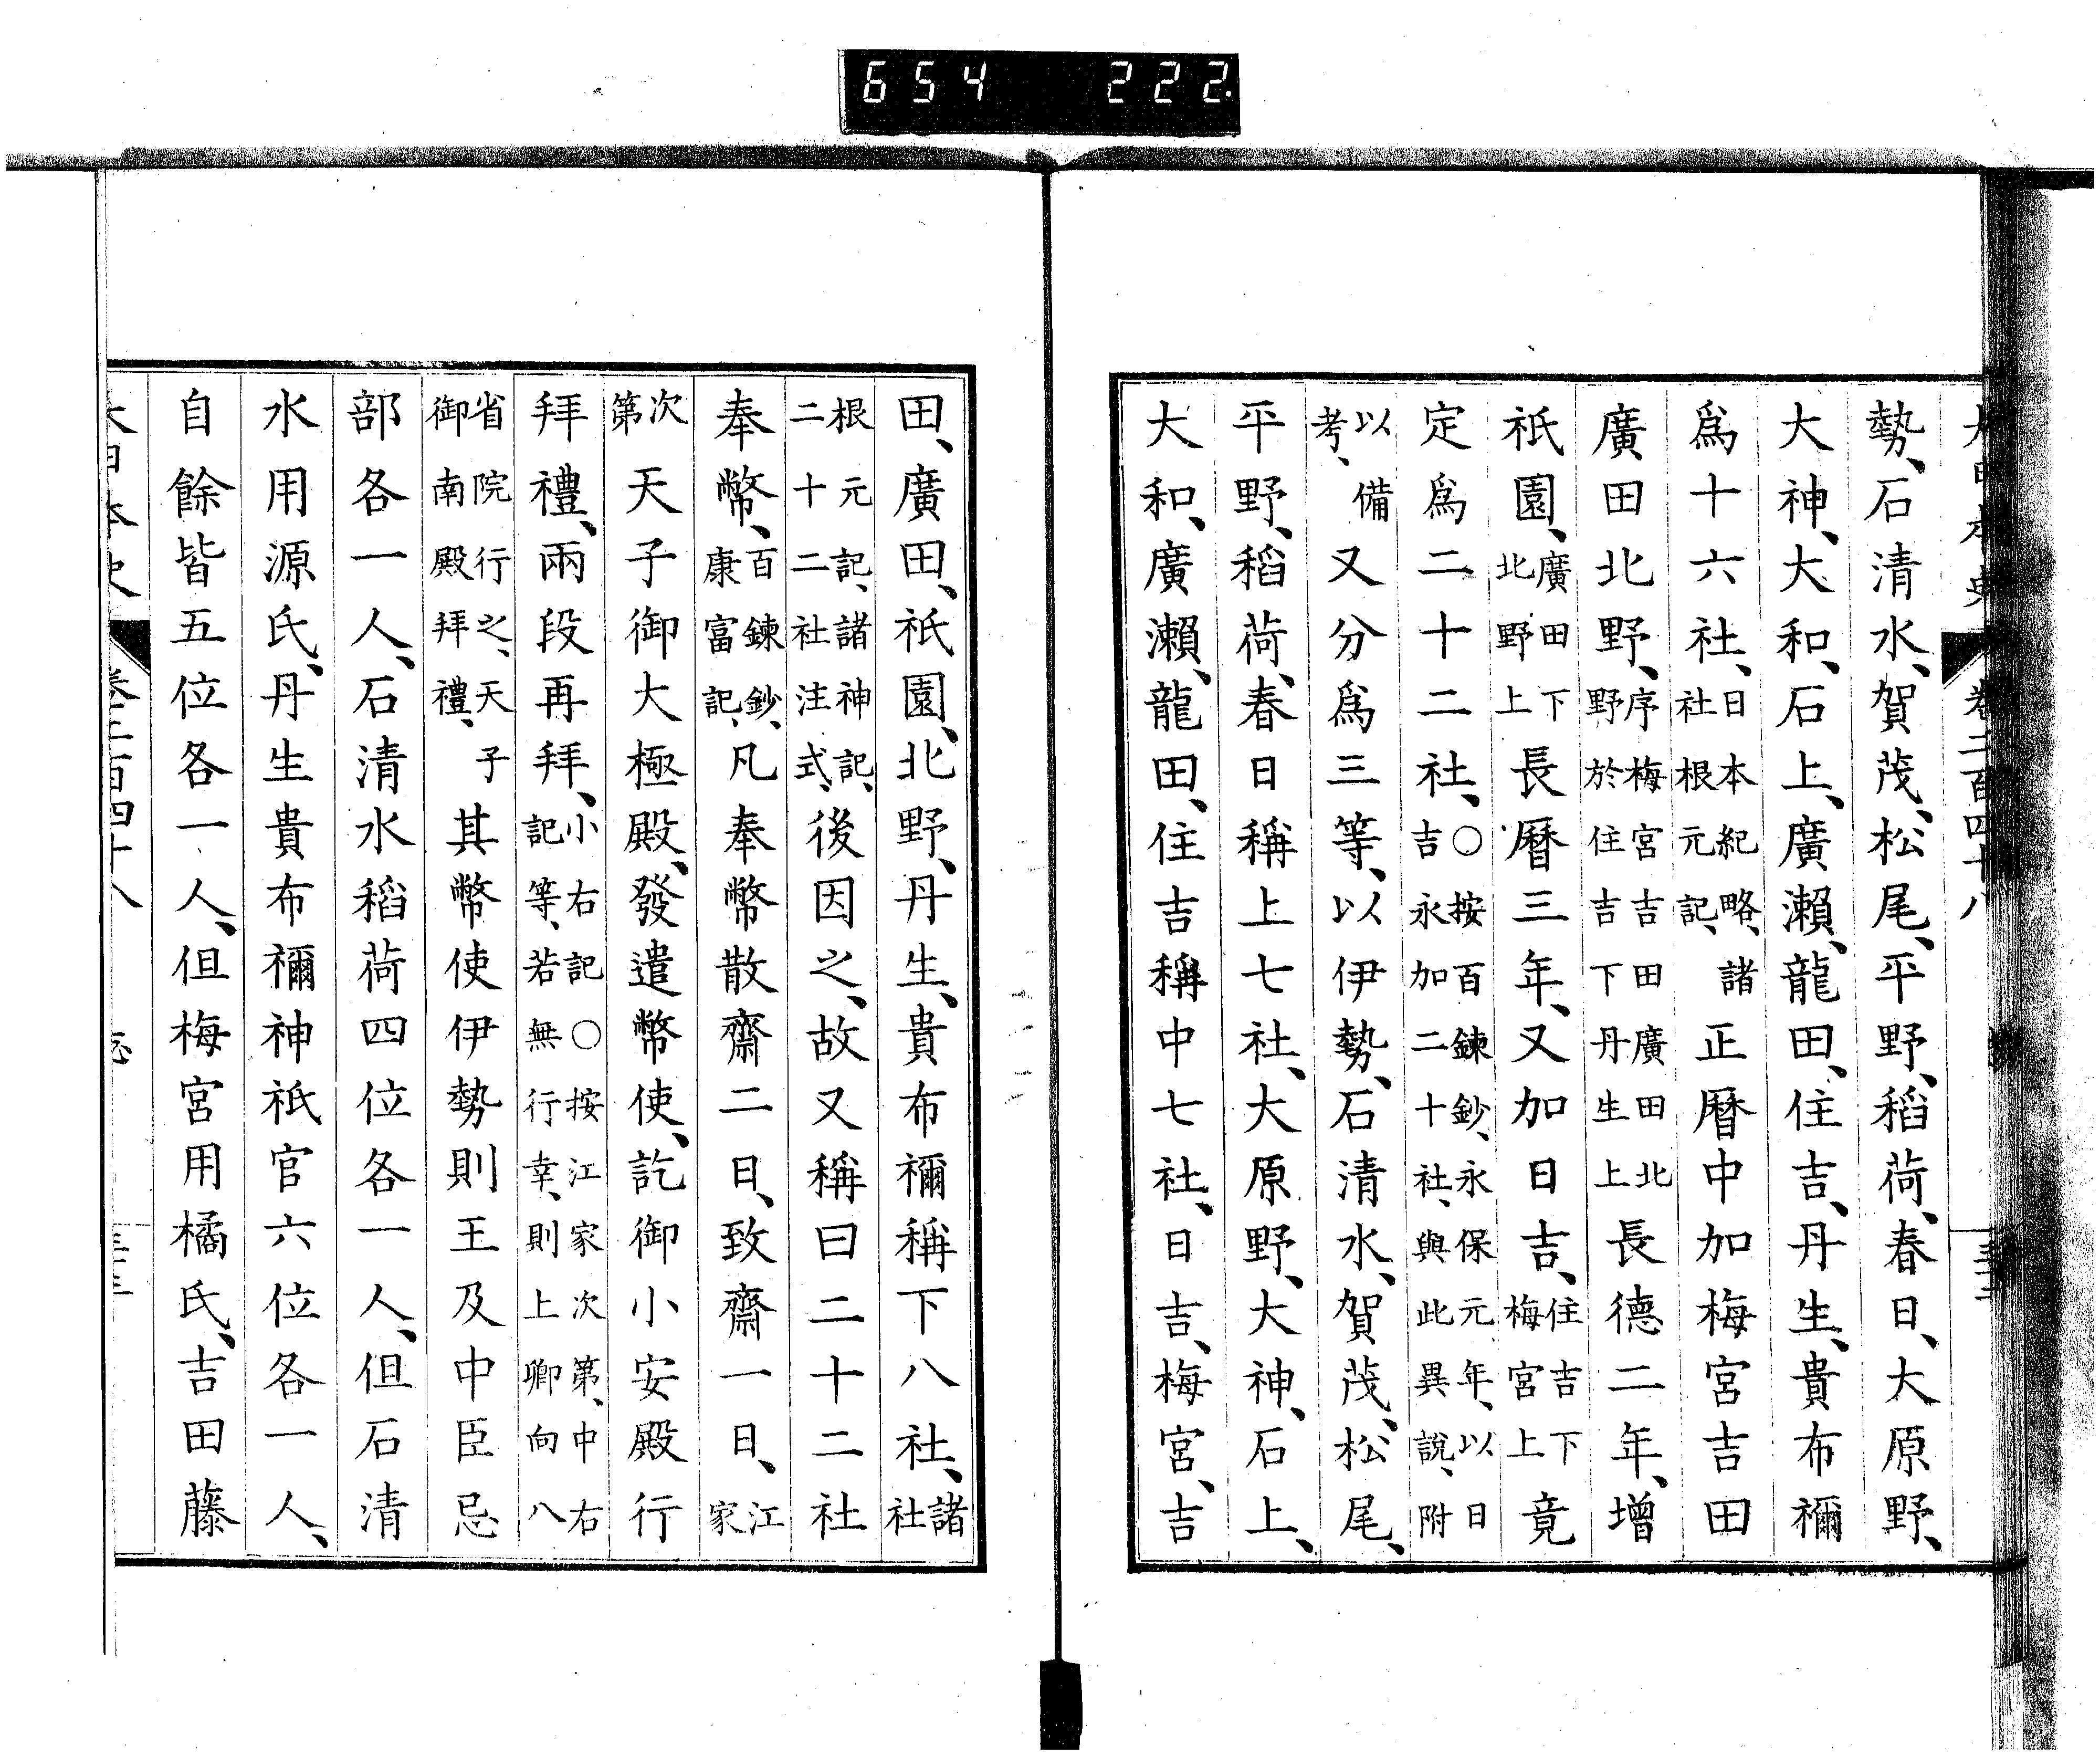 654 222
大日本史 卷二百四十八
勢、石清水、賀茂、松尾、平野、稻荷、春日、大原野、
大神、大和、石上、廣瀨、龍田、住吉、丹生、貴布禰
爲十六社、日本紀略、諸社根元記、正曆中加梅宮吉田
廣田北野、序梅宮吉田廣田北野於住吉下丹生上長德二年、增
祇園、廣田下北野上長曆三年、又加日吉、住吉下梅宮上竟
定爲二十二社、○按百鍊鈔、永保元年、以日吉永加二十社、與此異說、附
以備考、又分爲三等、以伊勢、石清水、賀茂、松尾、
平野、稻荷、春日稱上七社、大原野、大神、石上、
大和、廣瀨、龍田、住吉稱中七社、日吉、梅宮、吉
田、廣田、祇園、北野、丹生、貴布禰稱下八社、諸社
根元記、諸神記、二十二社注式、後因之、故又稱曰二十二社
奉幣、百鍊鈔、康富記、凡奉幣散齋二日、致齋一日、江家
次第天子御大極殿、發遣幣使、訖御小安殿行
拜禮、兩段再拜、小右記○按江家次第、中右記等、若無行幸、則上卿向八
省院行之、天子御南殿拜禮、其幣使伊勢則王及中臣忌
部各一人、石清水稻荷四位各一人、但石清
水用源氏、丹生貴布禰神祇官六位各一人、
自餘皆五位各一人、但梅宮用橘氏、吉田藤
大日本史 卷二百四十八 志